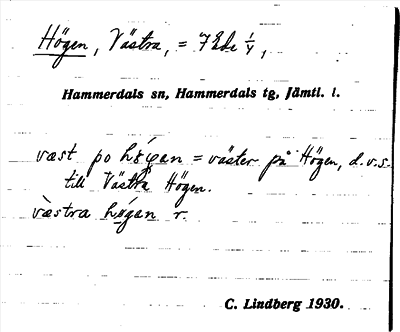 Högen, Västra, = 7 Ede 1/4,
Hammerdals sn, Hammerdals tg, Jämtl. l.
væst po högan = väster på Högen, d.v.s.
till Västra Högen.
væstra högan r.
C. Lindberg 1930.